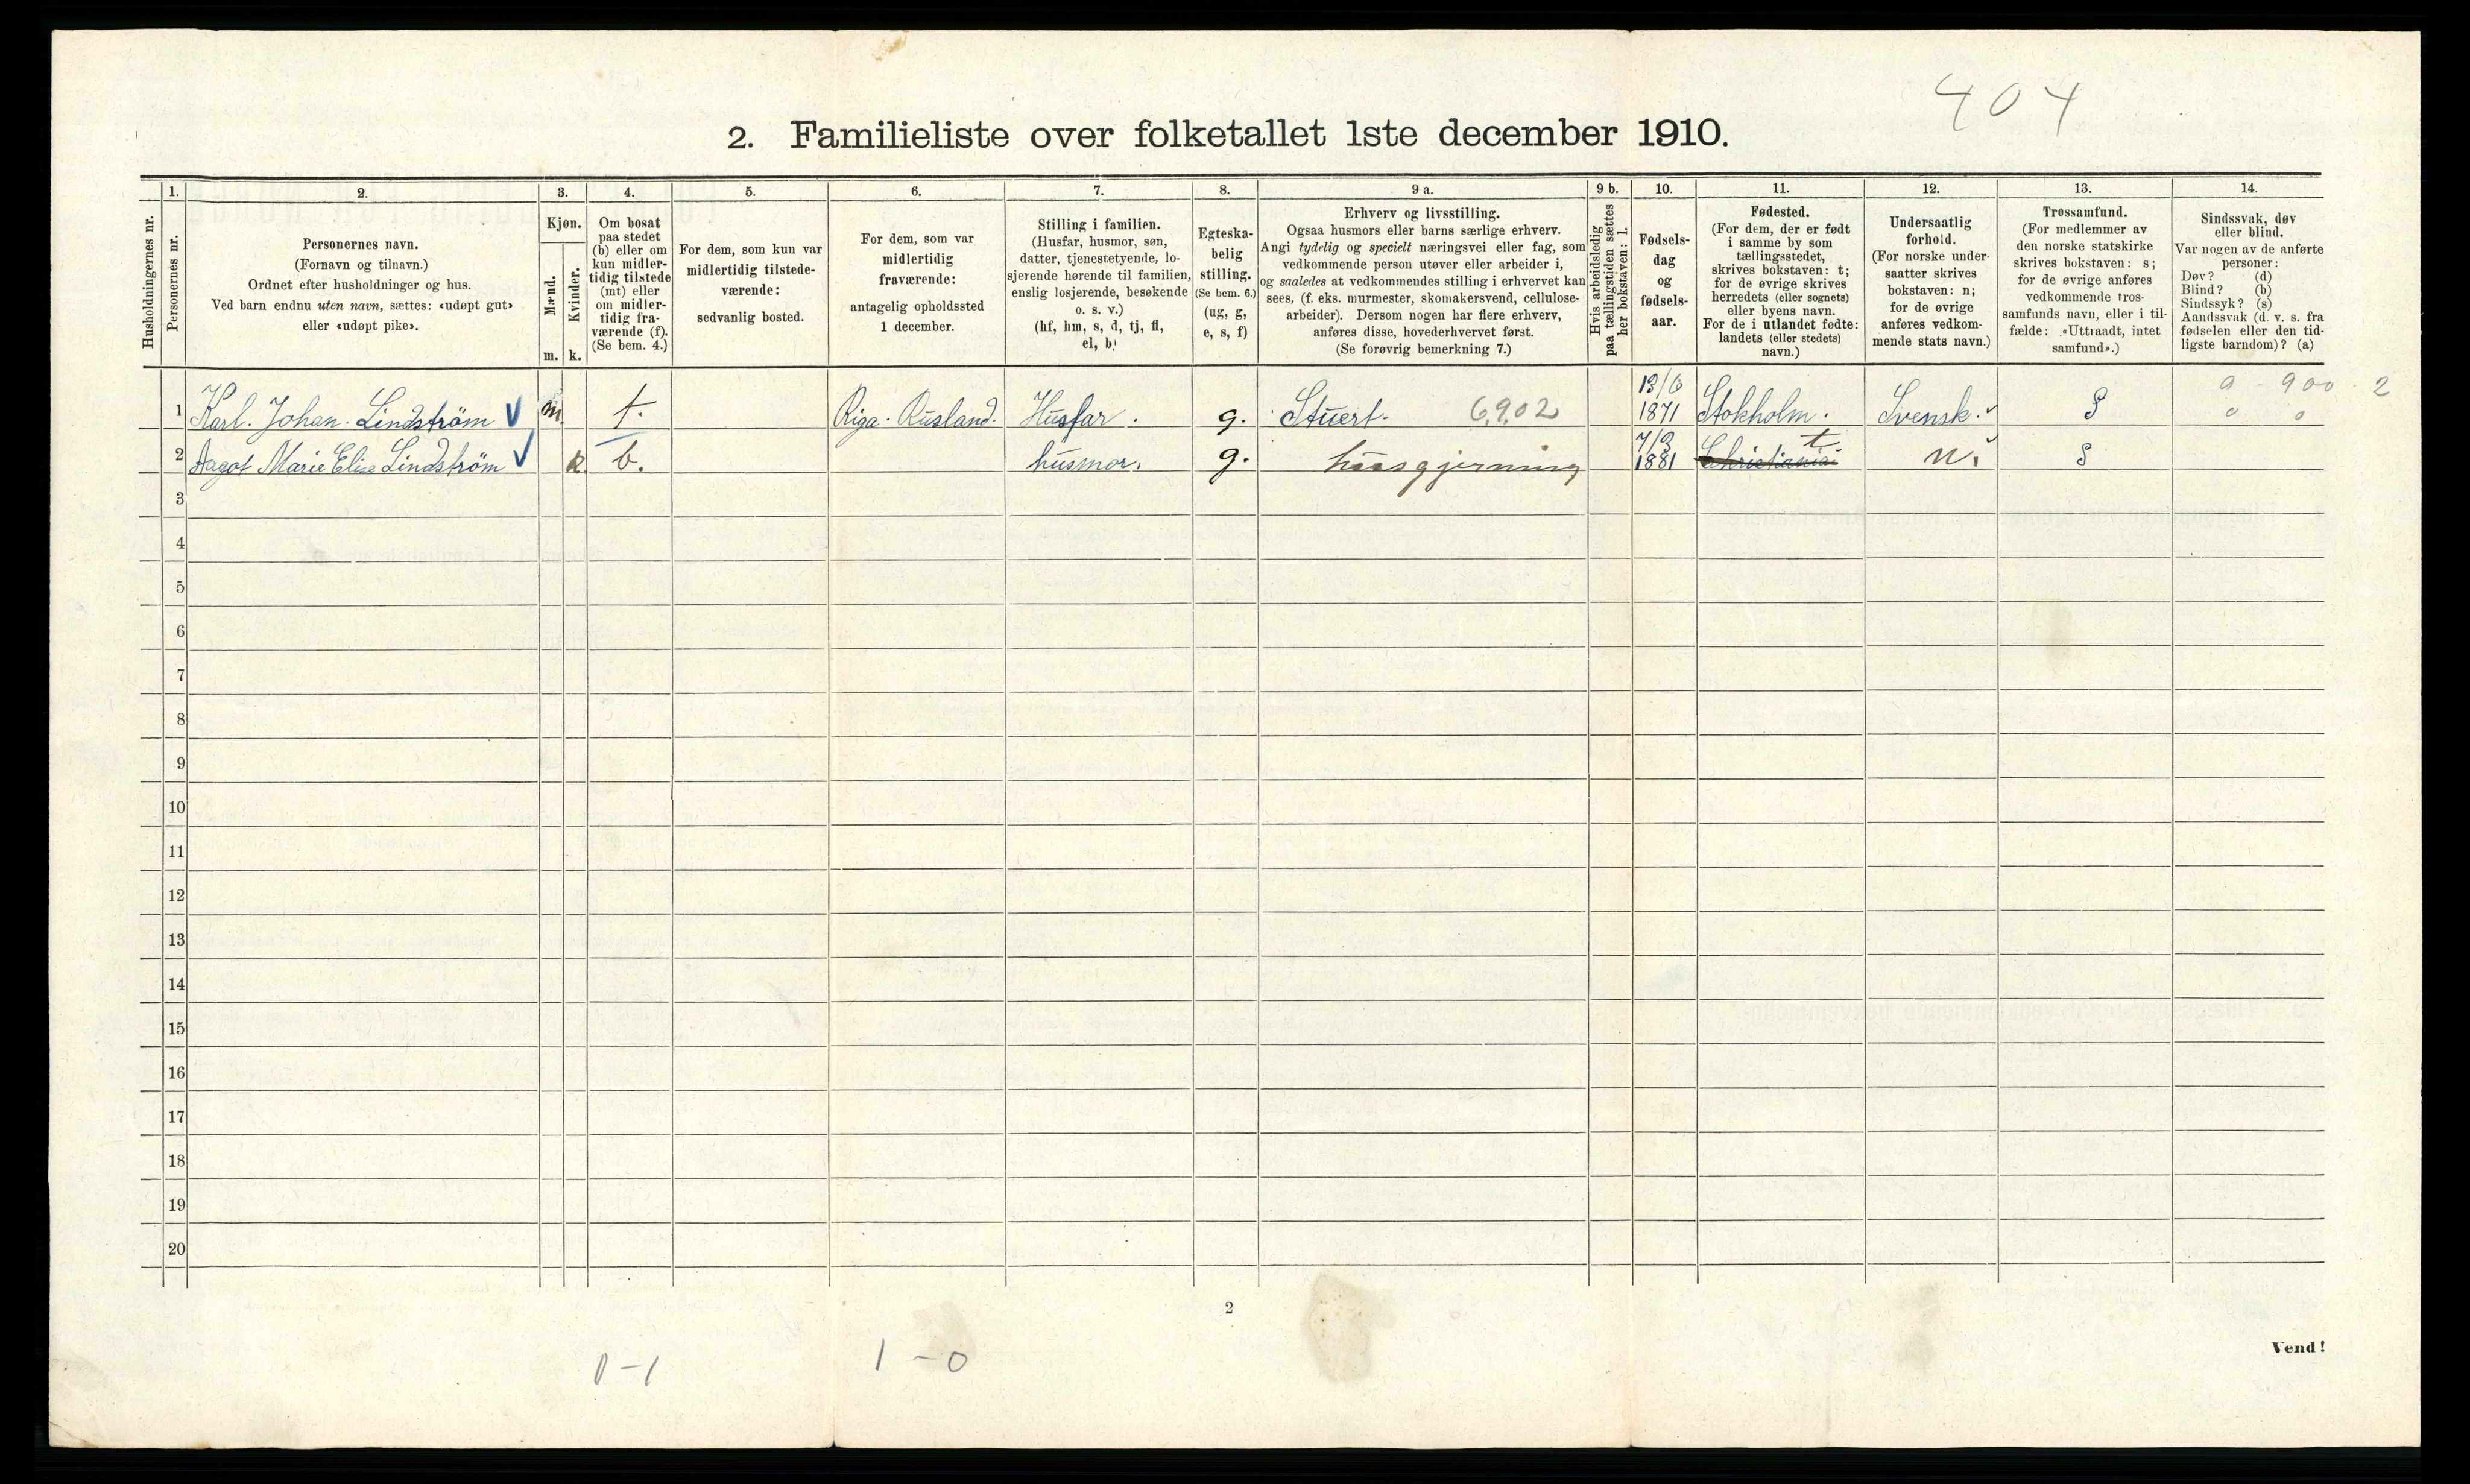 404
2. Familieliste over folketallet 1ste december 1910.
Husholdningernes nr.
1.
Personernes nr.
2.
Personernes navn.
(Fornavn og tilnavn.)
Ordnet efter husholdninger og hus.
Ved barn endnu uten navn, sættes: «udøpt gut»
eller «udøpt pike».
3.
Kjøn.
Mænd.
Kvinder.
m.
k.
4.
Om bosat
paa stedet
(b) eller om
kun midler-
tidig tilstede
(mt) eller
om midler-
tidig fra-
værende (f).
(Se bem. 4.)
5.
For dem, som kun var
midlertidig tilstede-
værende:
sedvanlig bosted.
6.
For dem, som var
midlertidig
fraværende:
antagelig opholdssted
1 december.
7.
Stilling i familien.
(Husfar, husmor, søn,
datter, tjenestetyende, lo-
sjerende hørende til familien,
enslig losjerende, besøkende
o. s. v.)
(hf, hm, s, d, tj, fl,
el, b)
8.
Egteska-
belig
stilling.
(Se bem. 6.)
(ug, g,
e, s, f)
9 a.
Erhverv og livsstilling.
Ogsaa husmors eller barns særlige erhverv.
Angi tydelig og specielt næringsvei eller fag, som
vedkommende person utøver eller arbeider i,
og saaledes at vedkommendes stilling i erhvervet kan
sees, (f. eks. murmester, skomakersvend, cellulose-
arbeider). Dersom nogen har flere erhverv,
anføres disse, hovederhvervet først.
(Se forøvrig bemerkning 7.)
9 b.
Hvis arbeidsledig
paa tællingstiden sættes
her bokstaven: l.
10.
Fødsels-
dag
og
fødsels-
aar.
11.
Fødested.
(For dem, der er født
i samme by som
tællingsstedet,
skrives bokstaven: t;
for de øvrige skrives
herredets (eller sognets)
eller byens navn.
For de i utlandet fødte:
landets (eller stedets)
navn.)
12.
Undersaatlig
forhold.
(For norske under-
saatter skrives
bokstaven: n;
for de øvrige
anføres vedkom-
mende stats navn.)
13.
Trossamfund.
(For medlemmer av
den norske statskirke
skrives bokstaven: s;
for de øvrige anføres
vedkommende tros-
samfunds navn, eller i til-
fælde: «Uttraadt, intet
samfund».)
14.
Sindssvak, døv
eller blind.
Var nogen av de anførte
personer:
Døv? (d)
Blind? (b)
Sindssyk? (s)
Aandssvak (d. v. s. fra
fødselen eller den tid-
ligste barndom)? (a)
0 - 900 - 2
1 Karl. Johan. Lindström m. f. Riga. Rusland. Husfar. g. Stuert. 6902 13/6 1871 Stokholm. Svensk. S
2 Aagot Marie Elise Lindström k b. husmor. g. huusgjerning 7/3 1881 Christiania t n. S
3
4
5
6
7
8
9
10
11
12
13
14
15
16
17
18
19
20
2
0-1
1-0
Vend!